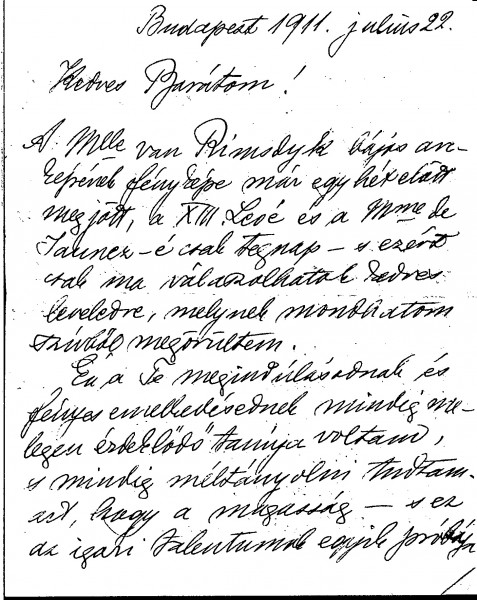 Budapest 1911. július 22.
Kedves Barátom!
A Mlle van Rimsdyk bájos arc-
képének fényképe már egy hét előtt
megjött, a XIII Leóé és a Mme de
-é csak tegnap – s ezért
csak ma válaszolhatok kedves
leveledre, melynek mondhatom
szívből megörültem.
Én a Te megindúlásodnak és
fényes emelkedésednek mindig me-
legen érdeklődő tanúja voltam,
s mindig méltányolni tudtam
azt, hogy a magasság – s ez
az igazi talentumok egyik próbája